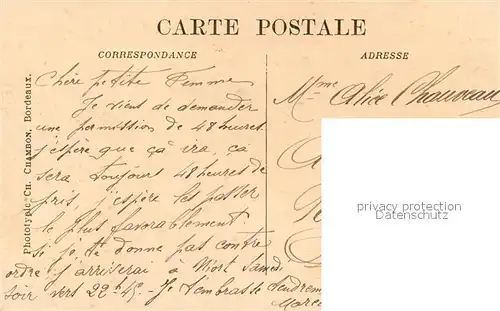 CARTE POSTALE
CORRESPONDANCE
ADRESSE
Phototypie Ch. CHAMBON, Bordeaux.
Chère petite Femme
Je viens de demander
une permission de 48 heures
j'espère que ça ira, ça
sera toujours 48 heures de
pris, j'espère les passer
le plus favorablement
si je te donne pas contre
ordre j'arriserai a Niort Samedi
soir vers 22h45. Je t'embrasse tendrem
Marce
Mme Alice Chauveau
privacy protection
Datenschutz